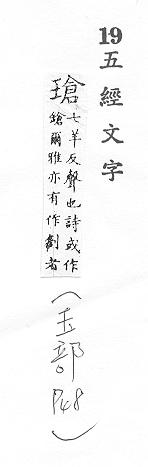 19五經文字
瑲七羊反聲也詩或作
鎗爾雅亦有作劊者
(玉部
P48)